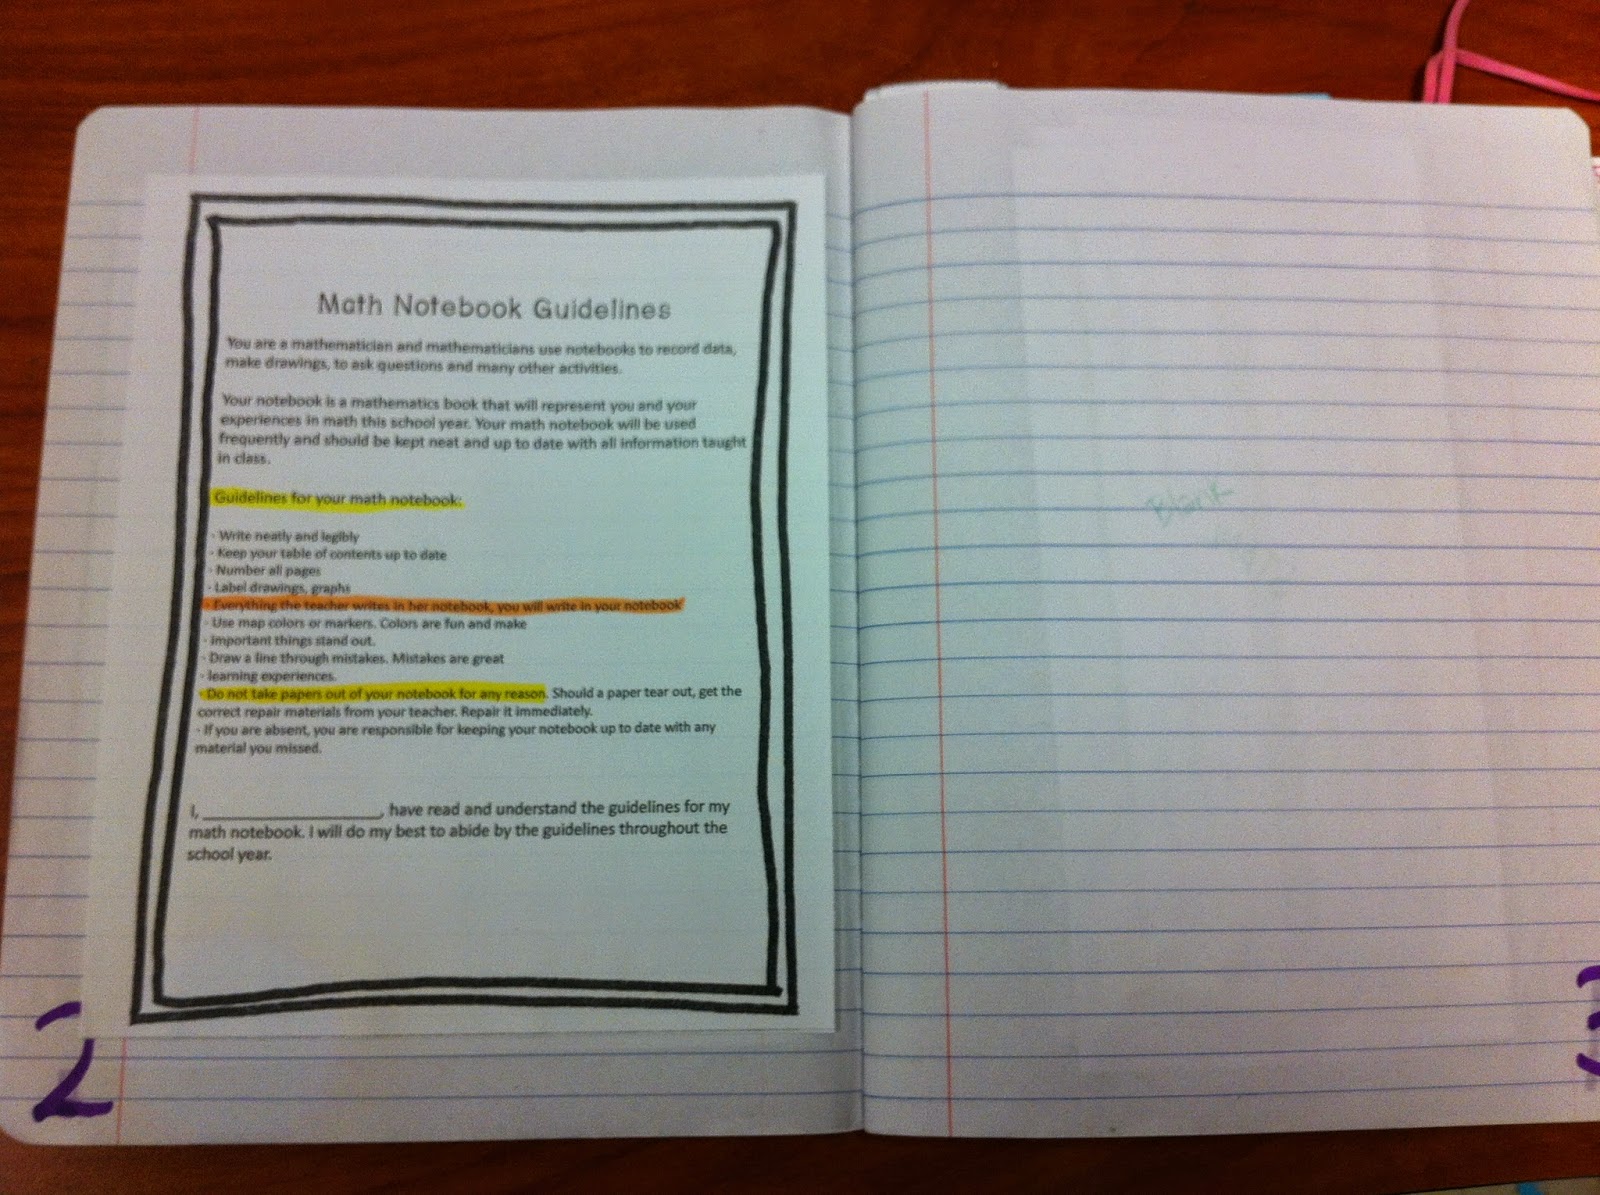 Math Notebook Guidelines
You are a mathematician and mathematicians use notebooks to record data,
make drawings, to ask questions and many other activities.
Your notebook is a mathematics book that will represent you and your
experiences in math this school year. Your math notebook will be used
frequently and should be kept neat and up to date with all information taught
in class.
Guidelines for your math notebook:
· Write neatly and legibly
· Keep your table of contents up to date
· Number all pages
· Label drawings, graphs
· Everything the teacher writes in her notebook, you will write in your notebook
· Use map colors or markers. Colors are fun and make
· important things stand out.
· Draw a line through mistakes. Mistakes are great
· learning experiences.
· Do not take papers out of your notebook for any reason. Should a paper tear out, get the
correct repair materials from your teacher. Repair it immediately.
· If you are absent, you are responsible for keeping your notebook up to date with any
material you missed.
I, ____________________, have read and understand the guidelines for my
math notebook. I will do my best to abide by the guidelines throughout the
school year.
2
Blank
3